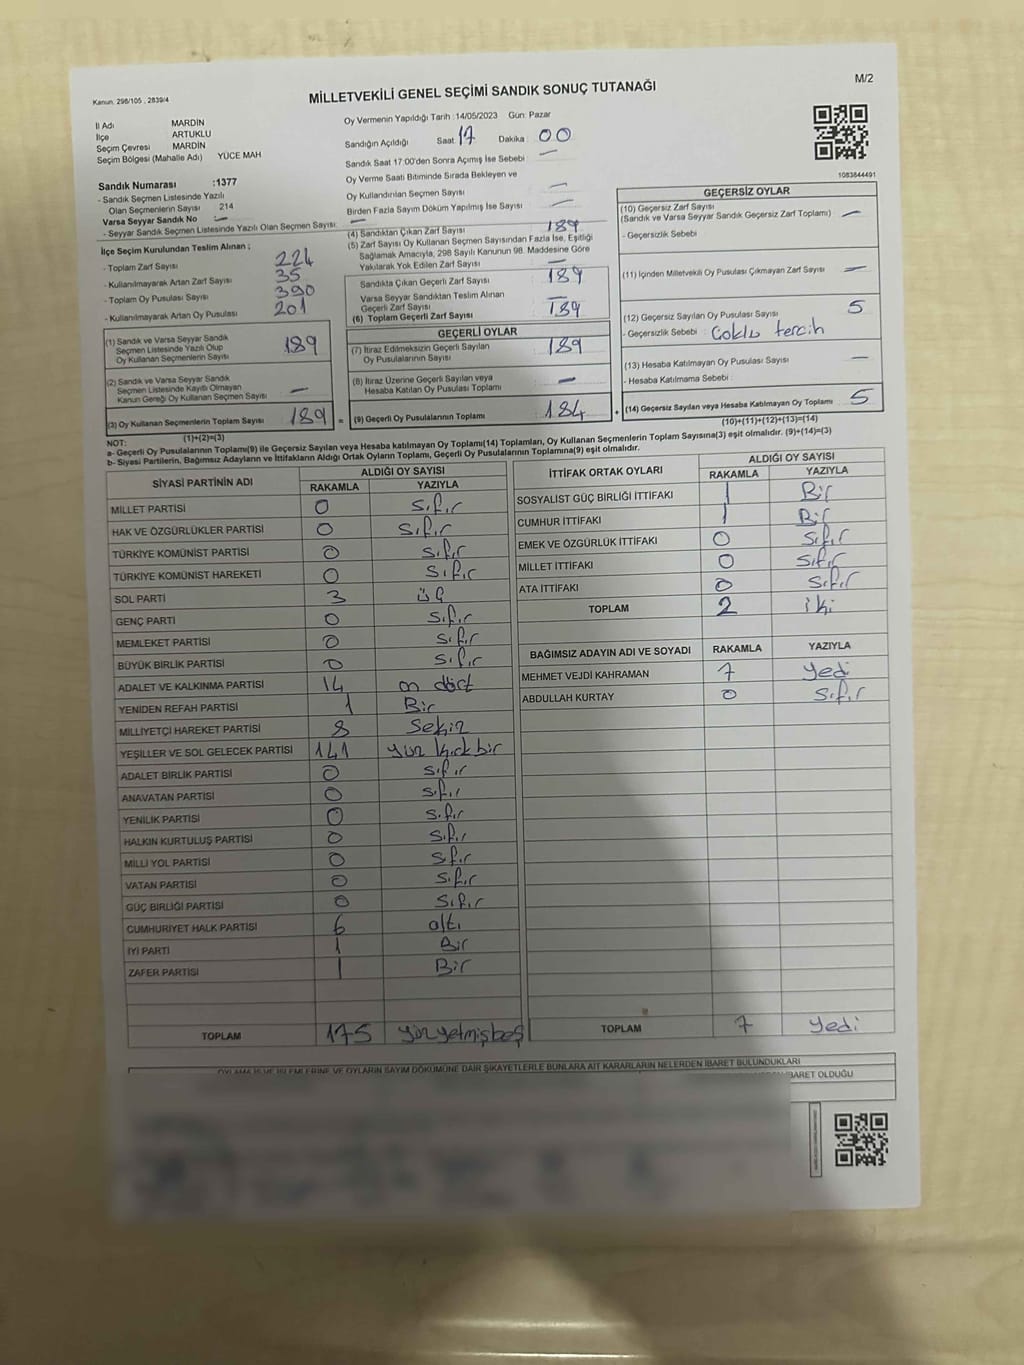 M/2
Kanun. 298/105 , 2839/4
MİLLETVEKİLİ GENEL SEÇİMİ SANDIK SONUÇ TUTANAĞI
İl Adı MARDİN
İlçe ARTUKLU
Seçim Çevresi MARDİN
Seçim Bölgesi (Mahalle Adı) YÜCE MAH
Sandık Numarası :1377
- Sandık Seçmen Listesinde Yazılı
Olan Seçmenlerin Sayısı 214
Varsa Seyyar Sandık No —
- Seyyar Sandık Seçmen Listesinde Yazılı Olan Seçmen Sayısı: —
Oy Vermenin Yapıldığı Tarih :14/05/2023 Gün: Pazar
Sandığın Açıldığı Saat: 17 Dakika: 00
Sandık Saat 17:00'den Sonra Açımış İse Sebebi : —
Oy Verme Saati Bitiminde Sırada Bekleyen ve
Oy Kullandırılan Seçmen Sayısı —
Birden Fazla Sayım Döküm Yapılmış İse Sayısı : —
1083844491
İlçe Seçim Kurulundan Teslim Alınan ;
- Toplam Zarf Sayısı 224
- Kullanılmayarak Artan Zarf Sayısı 35
- Toplam Oy Pusulası Sayısı 390
- Kullanılmayarak Artan Oy Pusulası 201
(1) Sandık ve Varsa Seyyar Sandık
Seçmen Listesinde Yazılı Olup
Oy Kullanan Seçmenlerin Sayısı 189
(2) Sandık ve Varsa Seyyar Sandık
Seçmen Listesinde Kayıtlı Olmayan
Kanun Gereği Oy Kullanan Seçmen Sayısı —
(3) Oy Kullanan Seçmenlerin Toplam Sayısı 189 =
(1)+(2)=(3)
(4) Sandıktan Çıkan Zarf Sayısı 189
(5) Zarf Sayısı Oy Kullanan Seçmen Sayısından Fazla İse, Eşitliği
Sağlamak Amacıyla, 298 Sayılı Kanunun 98. Maddesine Göre
Yakılarak Yok Edilen Zarf Sayısı : —
Sandıkta Çıkan Geçerli Zarf Sayısı 189
Varsa Seyyar Sandıktan Teslim Alınan
Geçerli Zarf Sayısı —
(6) Toplam Geçerli Zarf Sayısı 189
GEÇERLİ OYLAR
(7) İtiraz Edilmeksizin Geçerli Sayılan
Oy Pusulalarının Sayısı 189
(8) İtiraz Üzerine Geçerli Sayılan veya
Hesaba Katılan Oy Pusulası Toplamı —
(9) Geçerli Oy Pusulalarının Toplamı 184 +
GEÇERSİZ OYLAR
(10) Geçersiz Zarf Sayısı
(Sandık ve Varsa Seyyar Sandık Geçersiz Zarf Toplamı) —
- Geçersizlik Sebebi
(11) İçinden Milletvekili Oy Pusulası Çıkmayan Zarf Sayısı —
(12) Geçersiz Sayılan Oy Pusulası Sayısı 5
- Geçersizlik Sebebi : Çoklu tercih
(13) Hesaba Katılmayan Oy Pusulası Sayısı —
- Hesaba Katılmama Sebebi :
(14) Geçersiz Sayılan veya Hesaba Katılmayan Oy Toplamı 5
(10)+(11)+(12)+(13)=(14)
NOT:
a- Geçerli Oy Pusulalarının Toplamı(9) ile Geçersiz Sayılan veya Hesaba katılmayan Oy Toplamı(14) Toplamları, Oy Kullanan Seçmenlerin Toplam Sayısına(3) eşit olmalıdır. (9)+(14)=(3)
b- Siyasi Partilerin, Bağımsız Adayların ve İttifakların Aldığı Ortak Oyların Toplamı, Geçerli Oy Pusulalarının Toplamına(9) eşit olmalıdır.
SİYASİ PARTİNİN ADI ALDIĞI OY SAYISI
RAKAMLA YAZIYLA
MİLLET PARTİSİ 0 Sıfır
HAK VE ÖZGÜRLÜKLER PARTİSİ 0 Sıfır
TÜRKİYE KOMÜNİST PARTİSİ 0 Sıfır
TÜRKİYE KOMÜNİST HAREKETİ 0 Sıfır
SOL PARTİ 3 üç
GENÇ PARTİ 0 Sıfır
MEMLEKET PARTİSİ 0 Sıfır
BÜYÜK BİRLİK PARTİSİ 0 Sıfır
ADALET VE KALKINMA PARTİSİ 14 on dört
YENİDEN REFAH PARTİSİ 1 Bir
MİLLİYETÇİ HAREKET PARTİSİ 8 Sekiz
YEŞİLLER VE SOL GELECEK PARTİSİ 141 yüz kırk bir
ADALET BİRLİK PARTİSİ 0 Sıfır
ANAVATAN PARTİSİ 0 Sıfır
YENİLİK PARTİSİ 0 Sıfır
HALKIN KURTULUŞ PARTİSİ 0 Sıfır
MİLLİ YOL PARTİSİ 0 Sıfır
VATAN PARTİSİ 0 Sıfır
GÜÇ BİRLİĞİ PARTİSİ 0 Sıfır
CUMHURİYET HALK PARTİSİ 6 altı
İYİ PARTİ 1 Bir
ZAFER PARTİSİ 1 Bir
TOPLAM 175 yüzyetmişbeş
İTTİFAK ORTAK OYLARI ALDIĞI OY SAYISI
RAKAMLA YAZIYLA
SOSYALİST GÜÇ BİRLİĞİ İTTİFAKI 1 Bir
CUMHUR İTTİFAKI 1 Bir
EMEK VE ÖZGÜRLÜK İTTİFAKI 0 Sıfır
MİLLET İTTİFAKI 0 Sıfır
ATA İTTİFAKI 0 Sıfır
TOPLAM 2 iki
BAĞIMSIZ ADAYIN ADI VE SOYADI RAKAMLA YAZIYLA
MEHMET VEJDİ KAHRAMAN 7 yedi
ABDULLAH KURTAY 0 Sıfır
TOPLAM 7 yedi
OYLAMA İŞ VE İŞLEMLERİNE VE OYLARIN SAYIM DÖKÜMÜNE DAİR ŞİKAYETLERLE BUNLARA AİT KARARLARIN NELERDEN İBARET BULUNDUKLARI
İBARET OLDUĞU